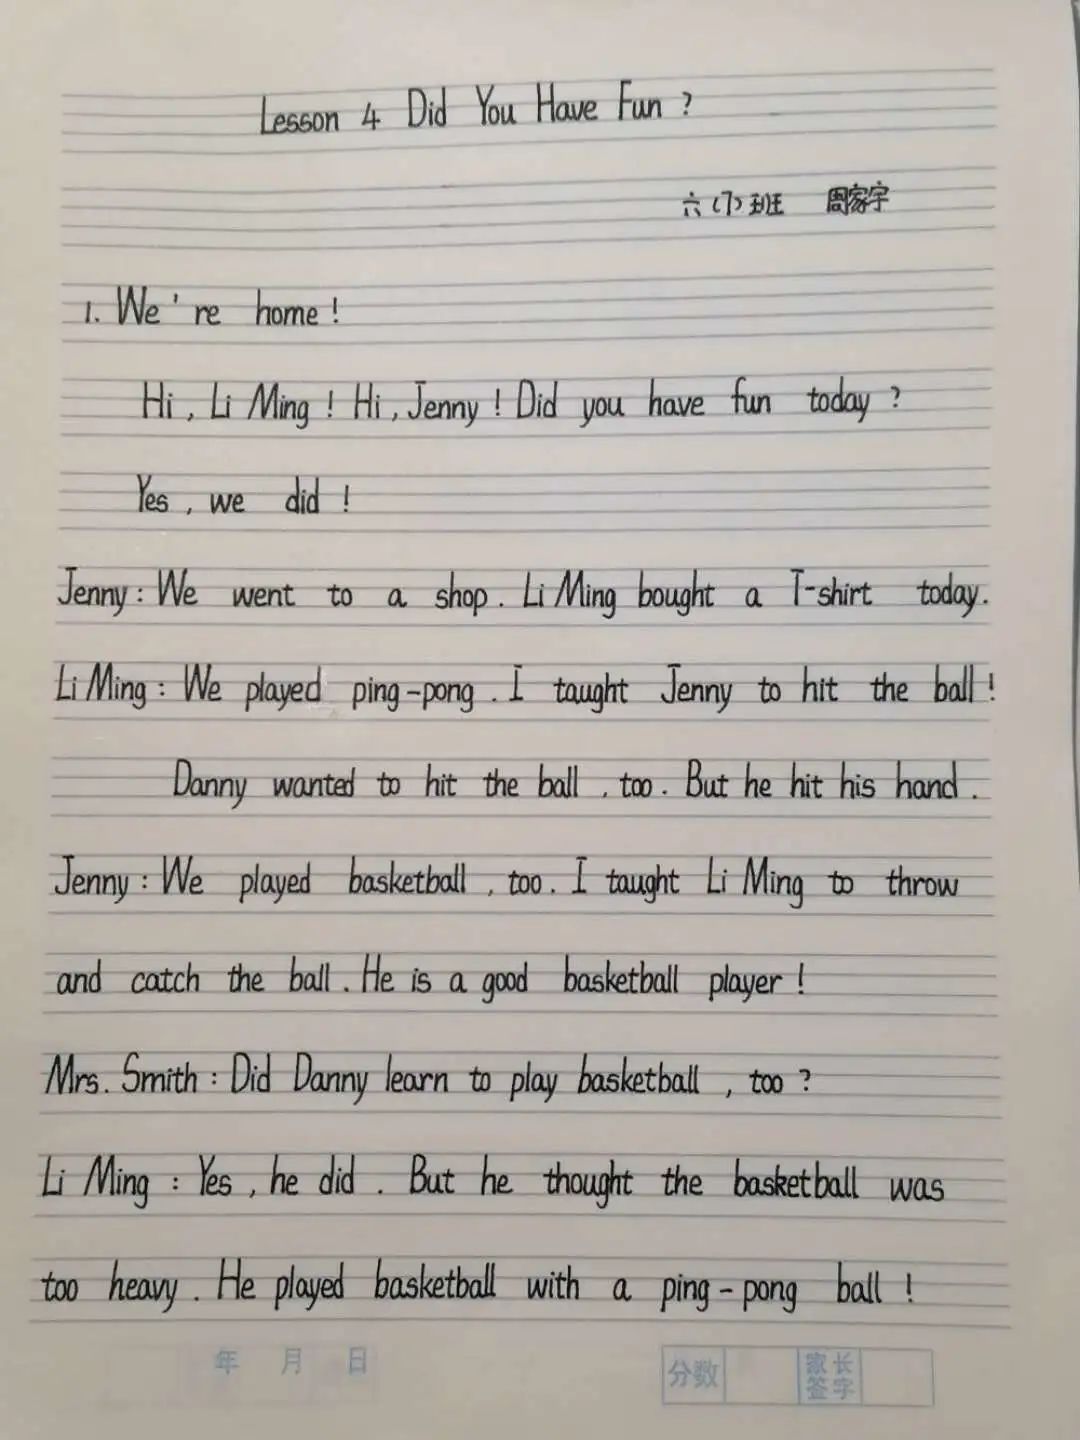 Lesson 4 Did You Have Fun ?
六（7）班 周家宇
1. We're home !
Hi , Li Ming ! Hi , Jenny ! Did you have fun today ?
Yes , we did !
Jenny : We went to a shop . Li Ming bought a T-shirt today.
Li Ming : We played ping-pong . I taught Jenny to hit the ball !
Danny wanted to hit the ball , too . But he hit his hand .
Jenny : We played basketball , too . I taught Li Ming to throw
and catch the ball . He is a good basketball player !
Mrs. Smith : Did Danny learn to play basketball , too ?
Li Ming : Yes , he did . But he thought the basketball was
too heavy . He played basketball with a ping-pong ball !
年 月 日
分数 家长签字